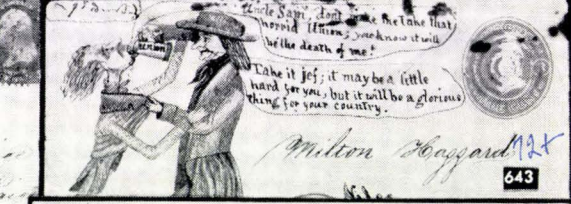 Uncle Sam, dont make me take that
horrid Union; you know it will
be the death of me!
Union
Take it jef; it may be a little
hard for you, but it will be a glorious
thing for your country.
Milton Haggard
72+
643